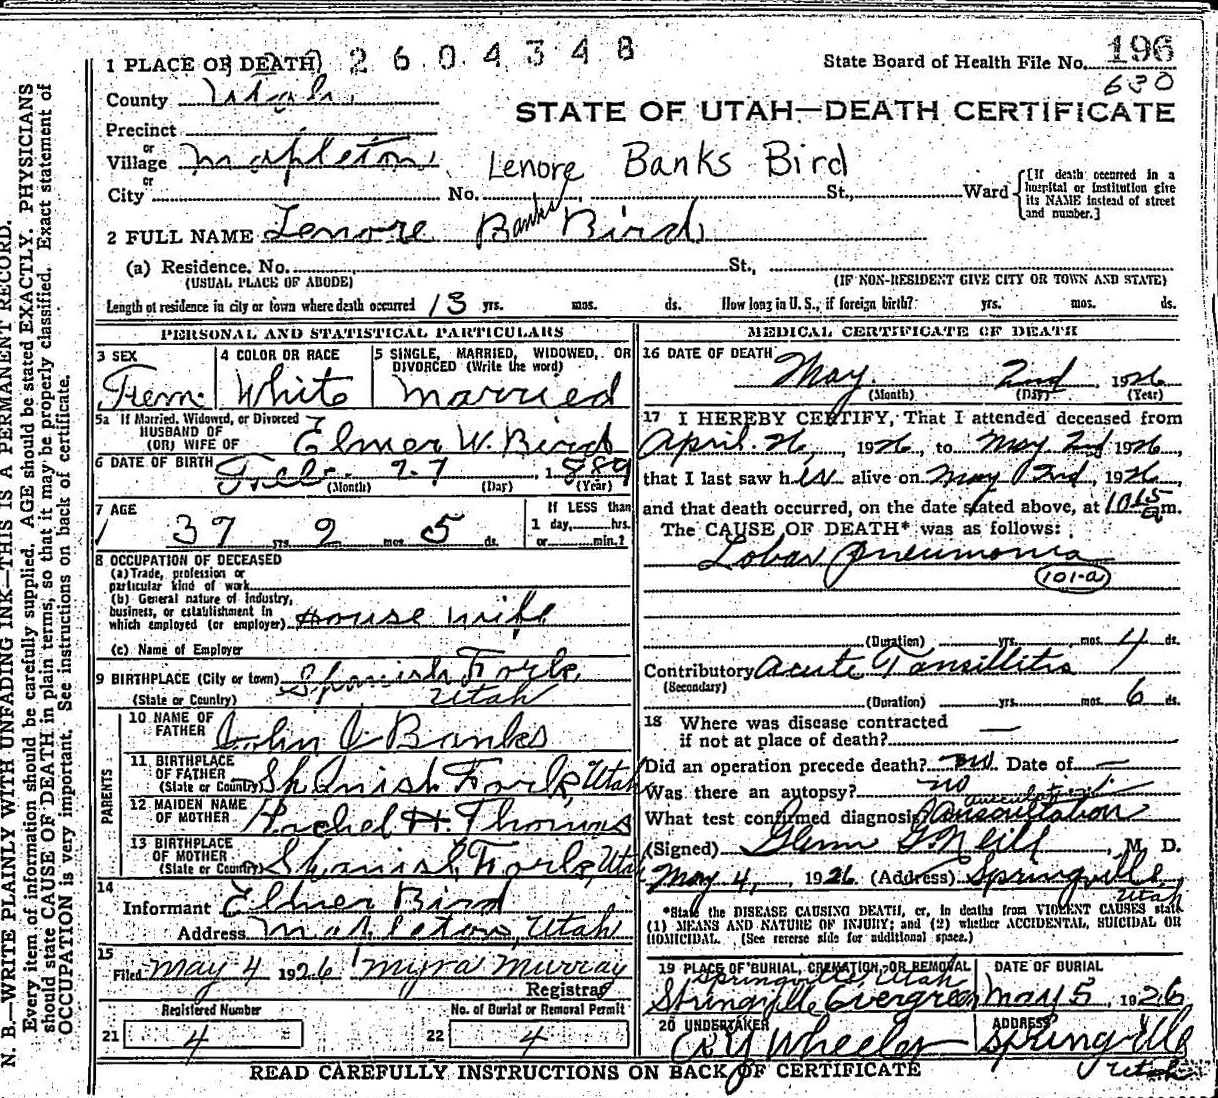 1 PLACE OF DEATH) 2 6 0 4 3 4 8
State Board of Health File No. 196
630
County Utah
STATE OF UTAH—DEATH CERTIFICATE
Precinct
or
Village Mapleton
Lenore Banks Bird
or
City No. St., Ward
[If death occurred in a
hospital or institution give
its NAME instead of street
and number.]
2 FULL NAME Lenore Banks Bird
(a) Residence. No. St.,
(USUAL PLACE OF ABODE) (IF NON-RESIDENT GIVE CITY OR TOWN AND STATE)
Length of residence in city or town where death occurred 13 yrs. mos. ds. How long in U. S., if foreign birth? yrs. mos. ds.
PERSONAL AND STATISTICAL PARTICULARS
3 SEX 4 COLOR OR RACE 5 SINGLE, MARRIED, WIDOWED, OR
DIVORCED (Write the word)
Fem. White married
5a If Married, Widowed, or Divorced
HUSBAND OF
(OR) WIFE OF Elmer W. Bird
6 DATE OF BIRTH Feb. 27, 1889
(Month) (Day) (Year)
7 AGE If LESS than
37 yrs. 2 mos. 5 ds.
1 day, hrs.
or min.?
8 OCCUPATION OF DECEASED
(a) Trade, profession or
particular kind of work
(b) General nature of Industry,
business, or establishment in
which employed (or employer) House wife
(c) Name of Employer
9 BIRTHPLACE (City or town) Spanish Fork,
(State or Country) Utah
PARENTS
10 NAME OF
FATHER John J. Banks
11 BIRTHPLACE
OF FATHER
(State or Country) Spanish Fork, Utah
12 MAIDEN NAME
OF MOTHER Rachel H. Thomas
13 BIRTHPLACE
OF MOTHER
(State or Country) Spanish Fork, Utah
14
Informant Elmer Bird
Address Mapleton, Utah
15
Filed May 4 1926 Myra Murray
Registrar
Registered Number No. of Burial or Removal Permit
21 4 22 4
MEDICAL CERTIFICATE OF DEATH
16 DATE OF DEATH
May 2nd, 1926
(Month) (Day) (Year)
17 I HEREBY CERTIFY, That I attended deceased from
April 26, 1926, to May 2nd 1926,
that I last saw her alive on May 2nd, 1926,
and that death occurred, on the date stated above, at 10 15 a m.
The CAUSE OF DEATH* was as follows:
Lobar pneumonia
101-a
(Duration) yrs. mos. 4 ds.
Contributory Acute Tonsillitis
(Secondary)
(Duration) yrs. mos. 6 ds.
18 Where was disease contracted
if not at place of death? —
Did an operation precede death? no. Date of —
Was there an autopsy? no
auscultation
What test confirmed diagnosis?
(Signed) Glenn G Neill, M. D.
May 4, 1926 (Address) Springville,
Utah
*State the DISEASE CAUSING DEATH, or, in deaths from VIOLENT CAUSES state
(1) MEANS AND NATURE OF INJURY; and (2) whether ACCIDENTAL, SUICIDAL OR
HOMICIDAL. (See reverse side for additional space.)
19 PLACE OF BURIAL, CREMATION, OR REMOVAL DATE OF BURIAL
Springville, Utah
Springville Evergreen May 5, 1926
20 UNDERTAKER ADDRESS
Wheeler Springville
Utah
READ CAREFULLY INSTRUCTIONS ON BACK OF CERTIFICATE
N. B.—WRITE PLAINLY WITH UNFADING INK—THIS IS A PERMANENT RECORD.
Every item of information should be carefully supplied. AGE should be stated EXACTLY. PHYSICIANS
should state CAUSE OF DEATH in plain terms, so that it may be properly classified. Exact statement of
OCCUPATION is very important. See instructions on back of certificate.